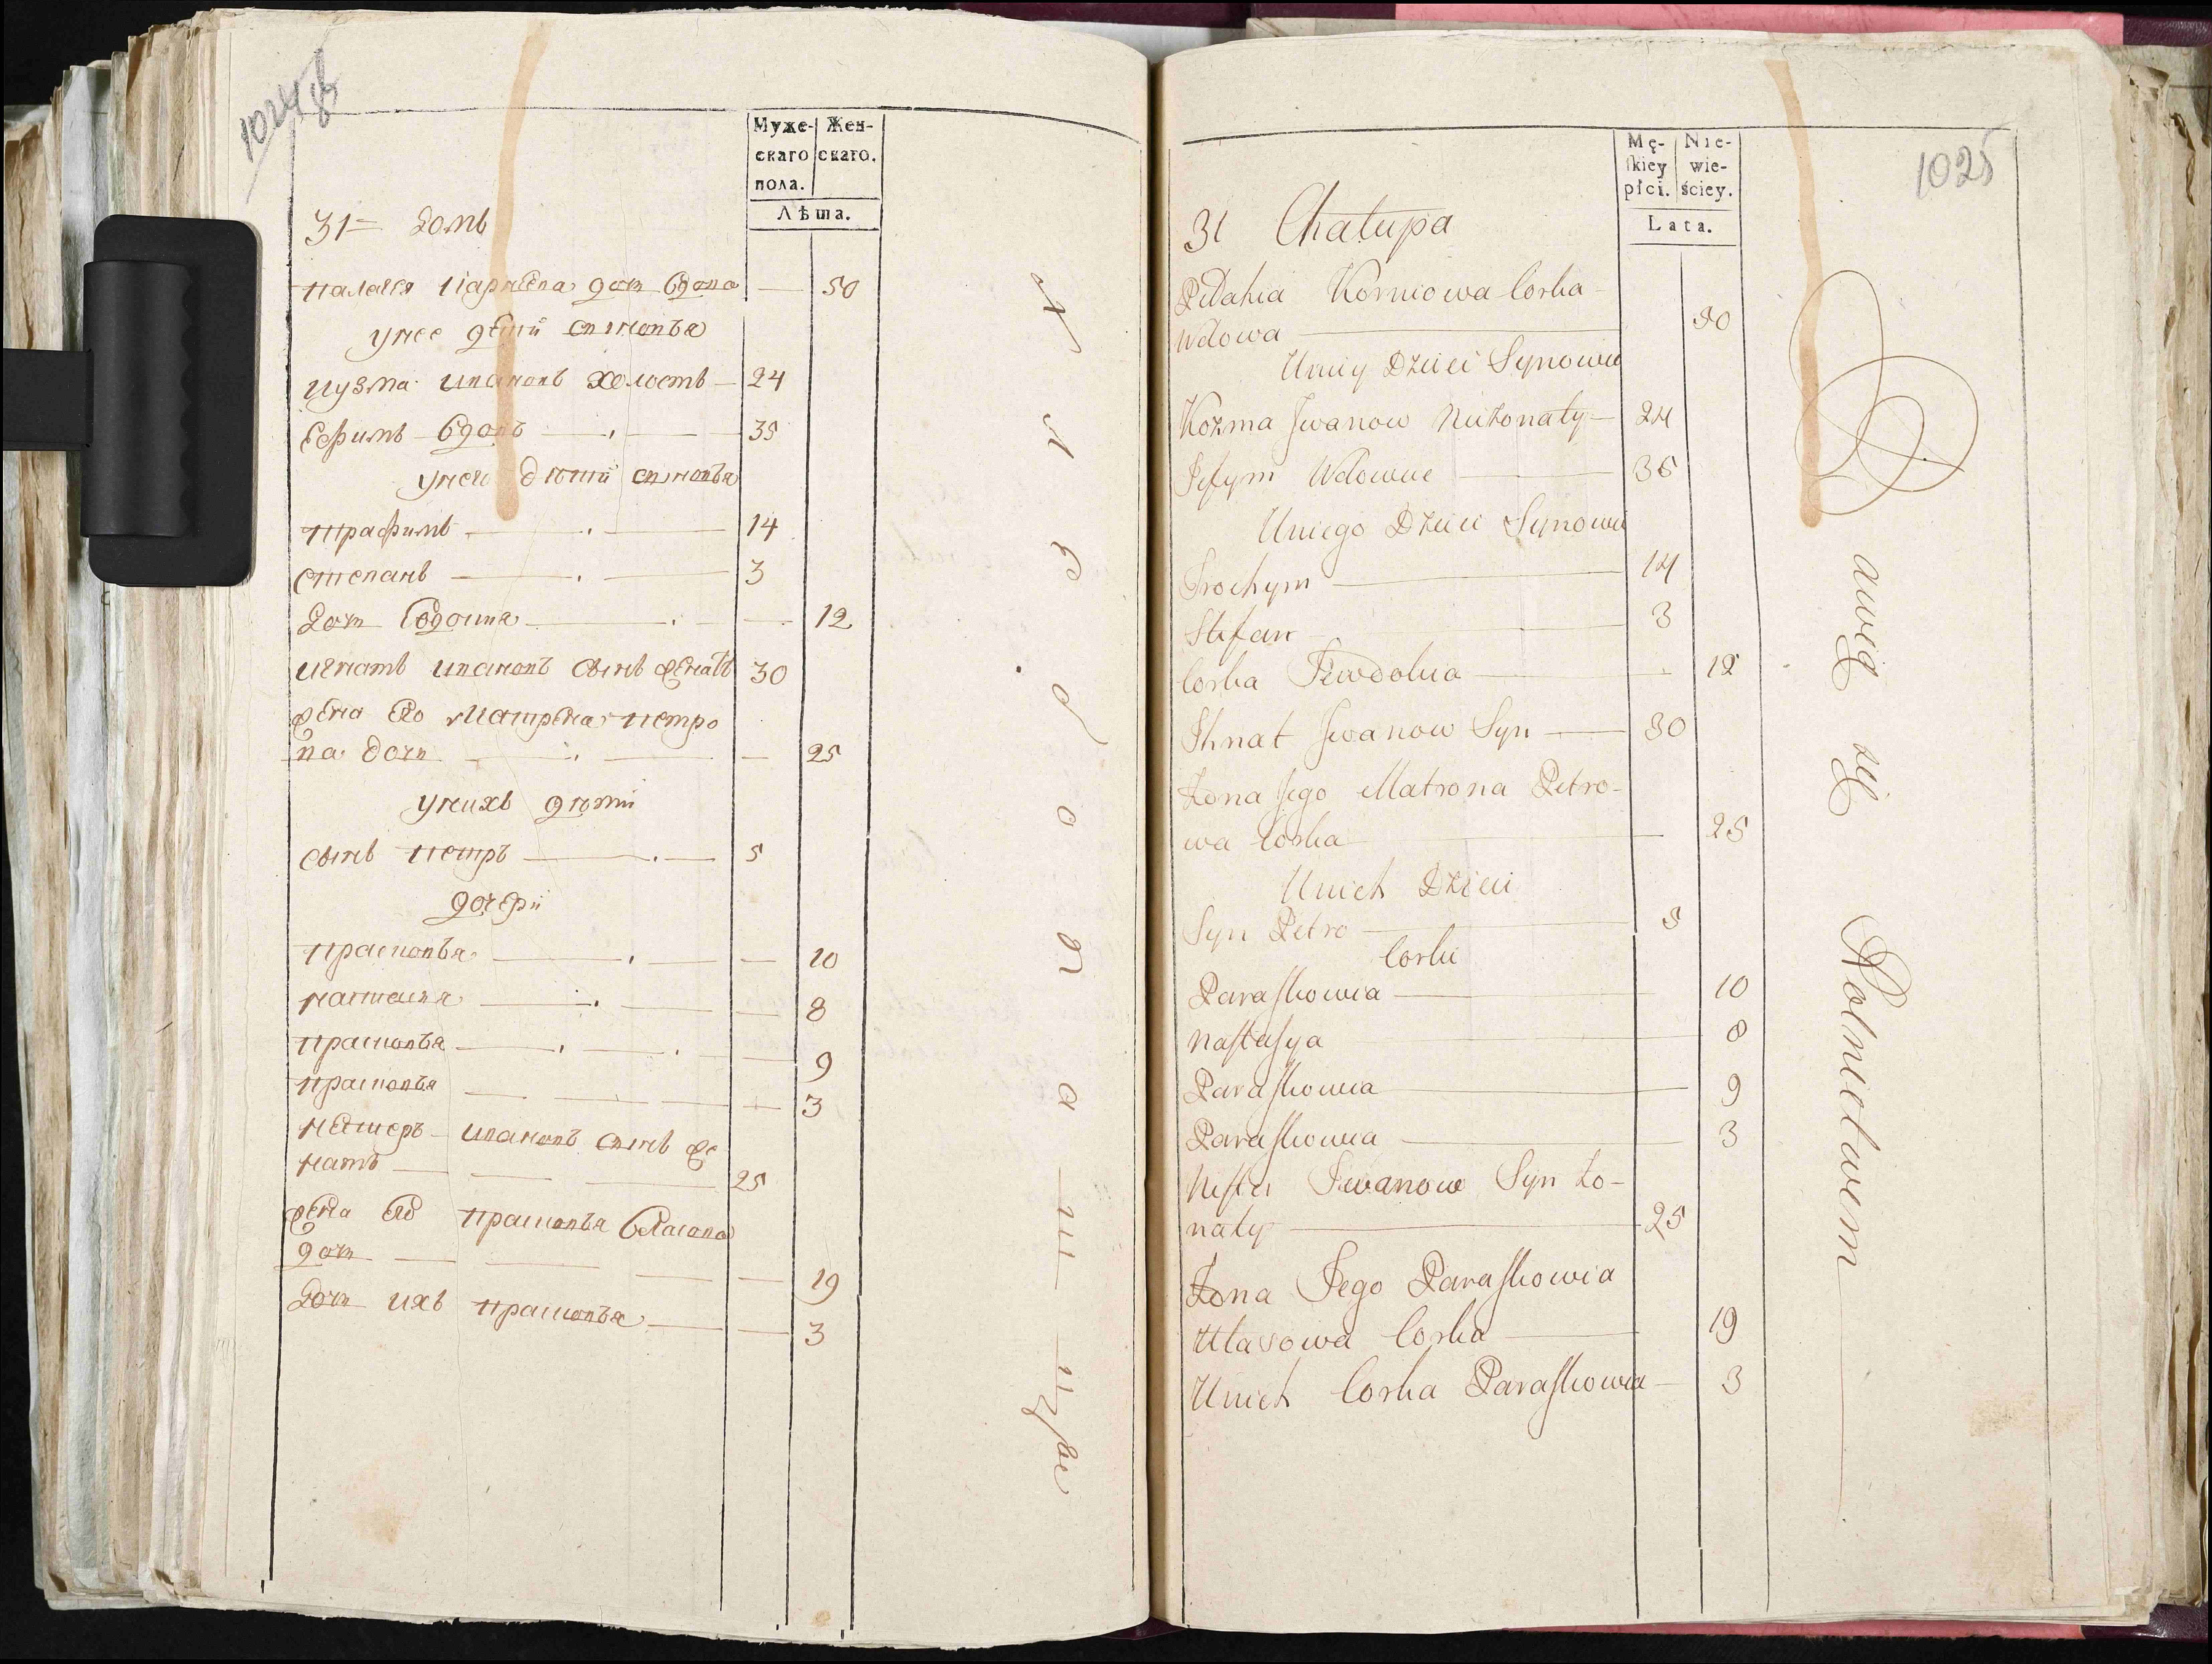 1024 в
Муже-
скаго
пола.
Жен-
скаго.
Лѣта.
31 = Домъ
Палагея Карнеева доч вдова — 50
у нее дети сыновья
Кузма Ивановъ холостъ — 24
Ефимъ вдовъ — 35
у нево дѣти сыновья
Трафимъ — 14
Степанъ — 3
Доч — 12
Игнатъ Ивановъ сынъ женатъ 30
жена ево Матрена Петро
ва дочь — 25
у нихъ дѣти
сынъ Петръ — 5
дочери
Прасковья — 10
Настасия — 8
Прасковья — 9
Прасковья — 3
Нестеръ Ивановъ сынъ же
натъ — 25
жена ево Прасковья Власова
доч — 19
Доч ихъ Прасковья — 3
1025
Mę-
skiey
płci.
Nie-
wie-
ściey.
Lata.
31 Chałupa
Pelahia Korniowa Corka
Wdowa — 50
U niey Dzieci Synowie
Kozma Jwanow Nieżonaty — 24
Jefym Wdowiec — 35
U niego Dzieci Synowie
Trochym — 14
Stefan — 3
Corka — 12
Ihnat Jwanow Syn — 30
Żona Jego Matrona Petro-
wa Corka — 25
U nich Dzieci
Syn Petro — 5
Corki
Paraskowia — 10
Nastasya — 8
Paraskowia — 9
Paraskowia — 3
Nester Iwanow Syn Żo-
naty — 25
Żona Jego Paraskowia
Ułasowa Corka — 19
U nich Corka Paraskowia — 3
bawią się Rolnictwem